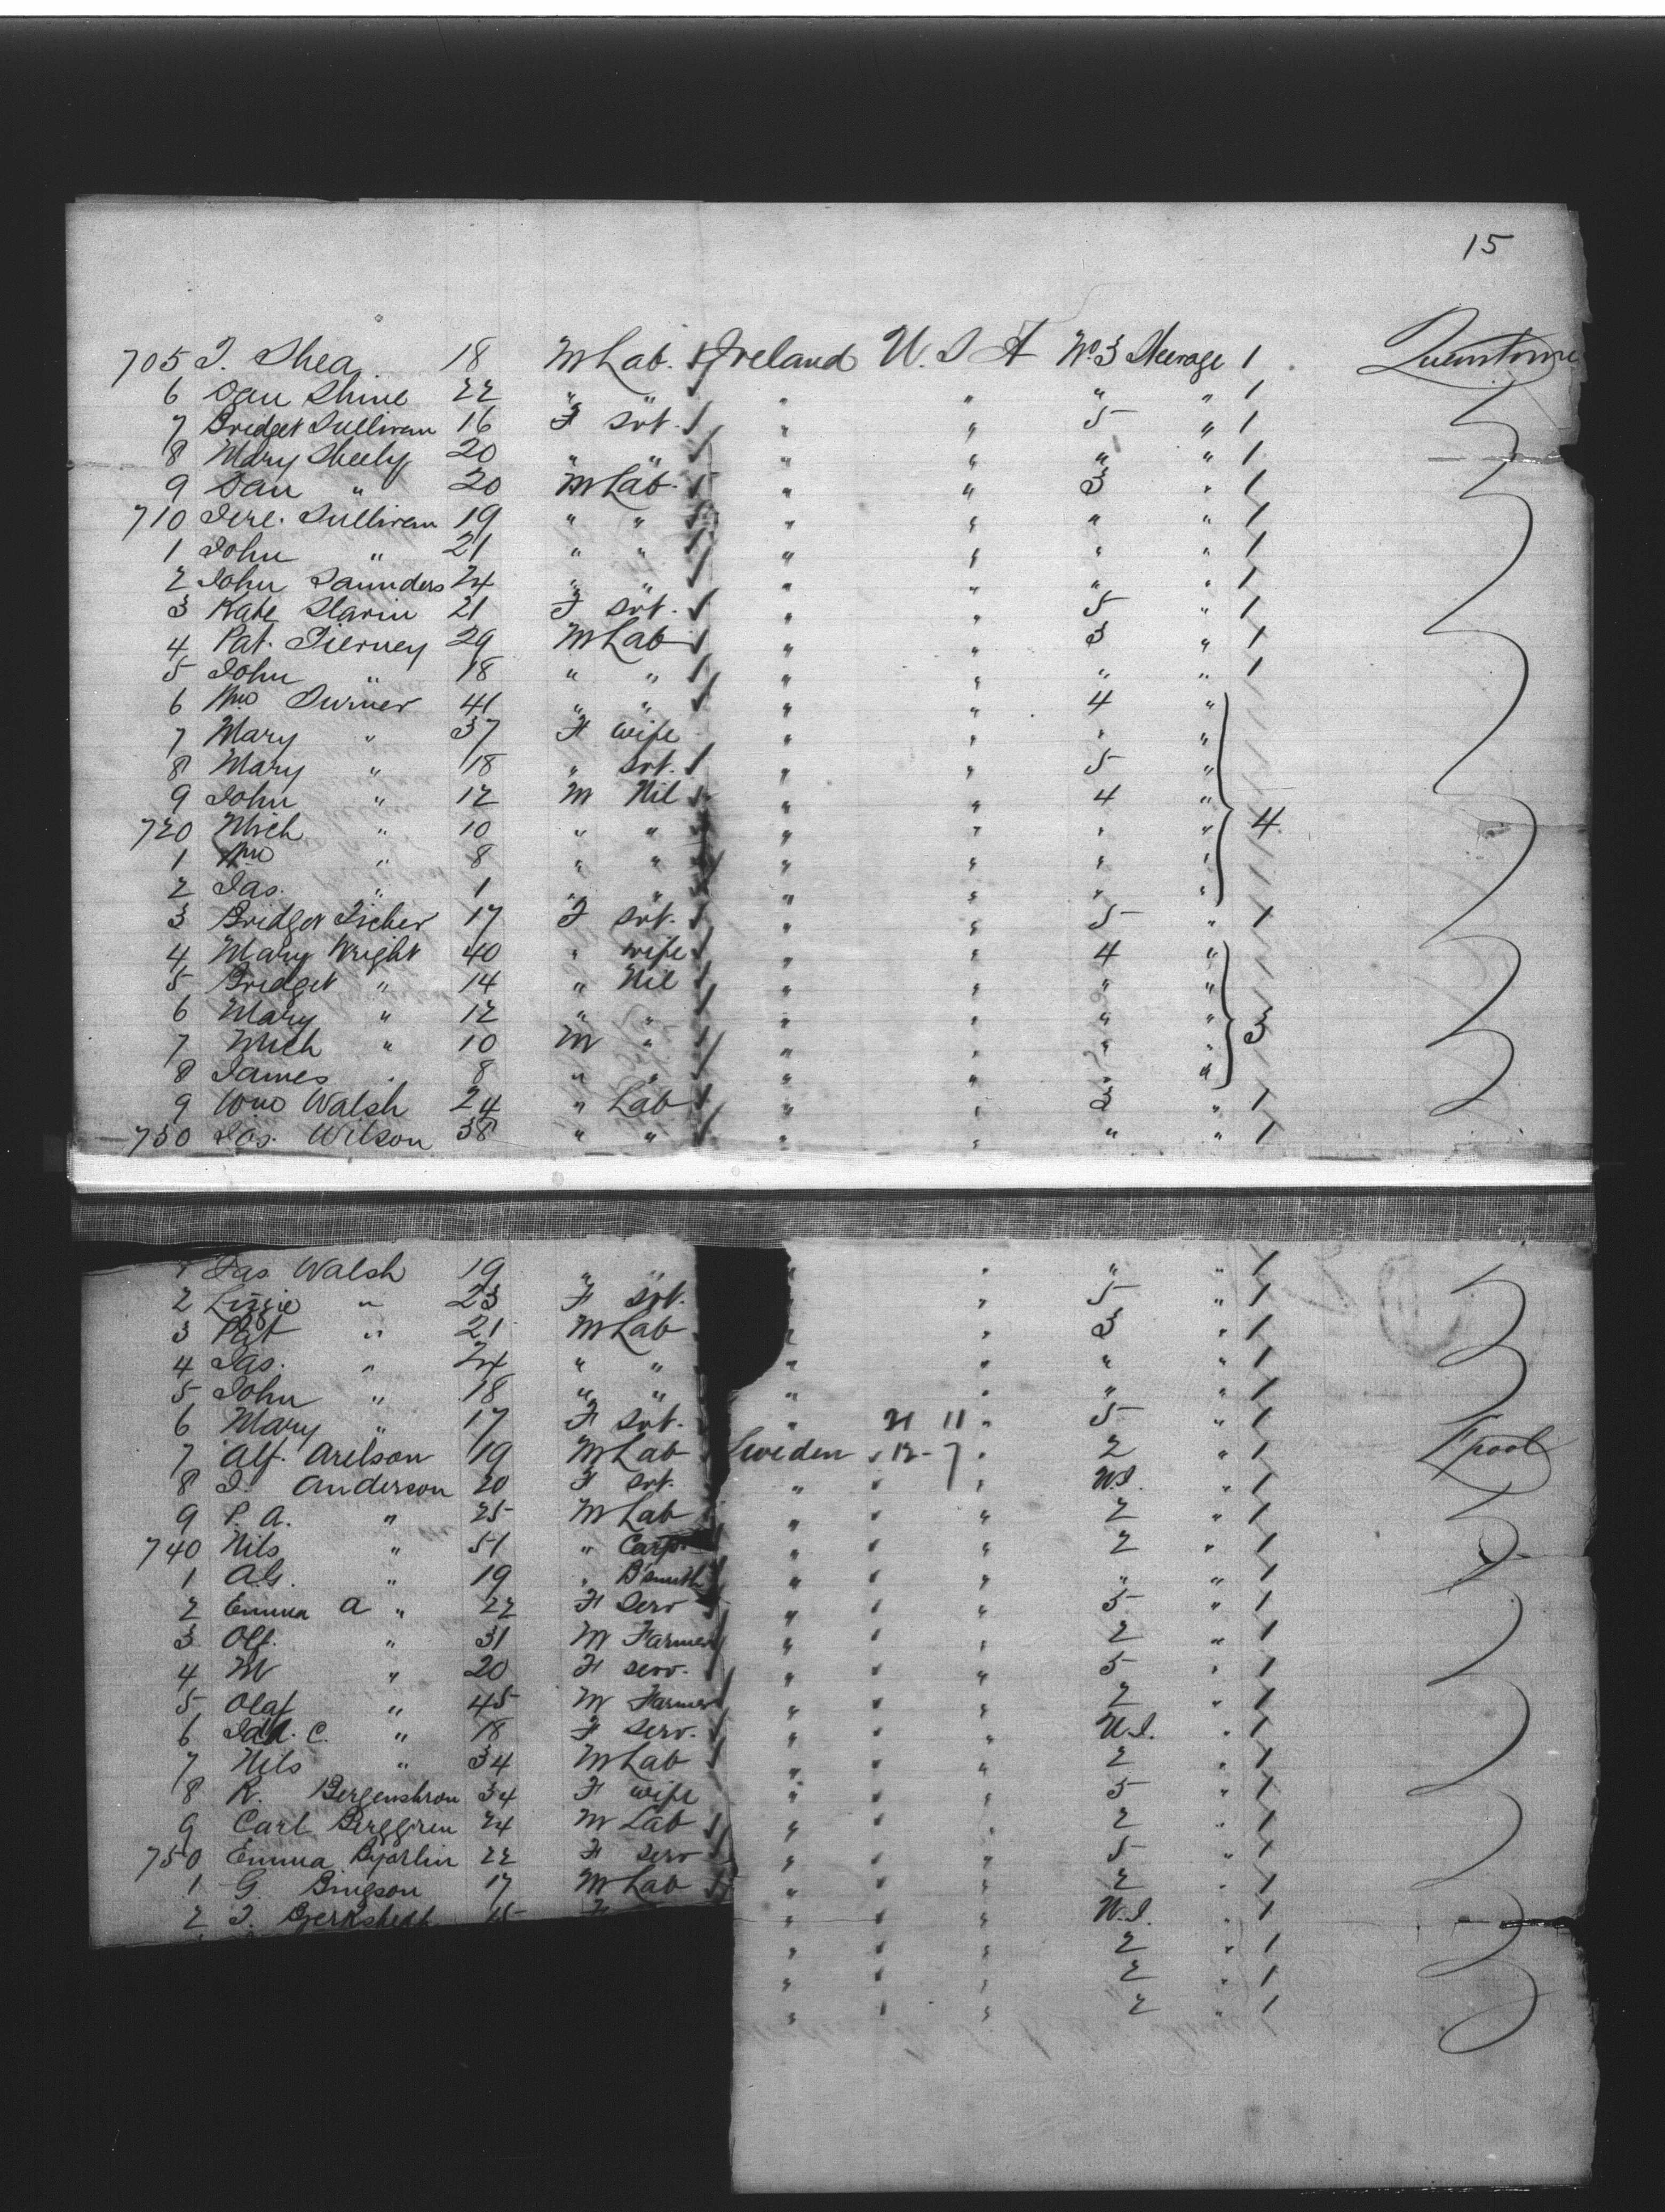 15
705 J. Shea 18 M Lab. Ireland U.S.A No 3 Steerage 1 Queenstown
6 Dan Shine 22 " " " " " " 1
7 Bridget Sullivan 16 F Svt. " " 5 " 1
8 Mary Sheely 20 " " " " " " 1
9 Dan " 20 M Lab. " " 3 " 1
710 Jere. Sullivan 19 " " " " " " 1
1 John " 21 " " " " " " 1
2 John Saunders 24 " " " " " " 1
3 Kate Slavin 21 F Svt. " " 5 " 1
4 Pat. Tierney 29 M Lab " " 3 " 1
5 John " 18 " " " " " " 1
6 Wm Turner 41 " " " " 4 "
7 Mary " 37 F wife " " " "
8 Mary " 18 " Svt. " " 5 "
9 John " 12 M Nil " " 4 "
720 Mich " 10 " " " " " " 4
1 Wm " 8 " " " " " "
2 Jas. " 1 " " " " " "
3 Bridget 17 F Svt. " " 5 " 1
4 Mary Wright 40 " wife " " 4 "
5 Bridget " 14 " Nil " " " "
6 Mary " 12 " " " " " "
7 Mich " 10 M " " " " " 3
8 James " 8 " " " " " "
9 Wm Walsh 24 " Lab " " 3 " 1
730 Jas. Wilson 38 " " " " " " 1
1 Jas Walsh 19 " " " " " " 1
2 Lizzie " 23 F Svt. " " 5 " 1
3 Pat " 21 M Lab " " 3 " 1
4 Jas. " 24 " " " " " " 1
5 John " 18 " " " " " " 1
6 Mary " 17 F Svt. " 21 11 " 5 " 1
7 Alf. Arelson 19 M Lab Sweden " 12-7 " 2 " 1 L'pool
8 J. Anderson 20 F Svt. " " " W.S. " 1
9 P. A. " 25 M Lab " " " 2 " 1
740 Nils " 51 " Carp. " " " 2 " 1
1 A.G. " 19 " B'smith " " " " " 1
2 Emma A " 22 F Serv " " " 5 " 1
3 Olf. " 31 M Farmer " " " 2 " 1
4 M " 20 F serv. " " " 5 " 1
5 Olaf " 45 M Farmer " " " 2 " 1
6 Ida. C. " 18 F Serv. " " " W.S. " 1
7 Nils " 34 M Lab " " " 2 " 1
8 R. Bergenstrom 34 F wife " " " 5 " 1
9 Carl Berggren 24 M Lab " " " 2 " 1
750 Emma Bjorlin 22 F serv " " " 5 " 1
1 G. 17 M Lab " " " 2 " 1
2 J. 15 F " " " W.S. " 1
" " " 2 " 1
" " " 2 " 1
" " " 2 " 1